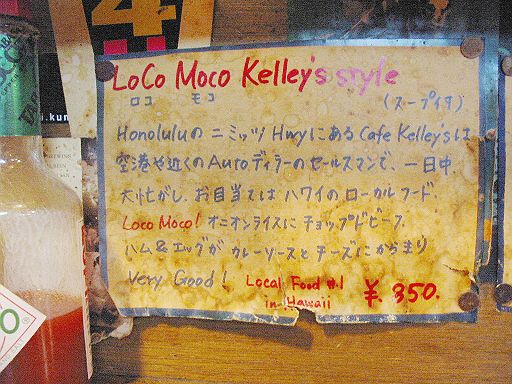 4
LoCo Moco Kelley's style
ロコ モコ (スープ付)
Honoluluの ニミッツ HwyにあるCafe Kelley'sは
空港や近くのAutoディーラーのセールスマンで、一日中
大忙がし。お目当ては ハワイの ローカルフード.
Loco Moco! オニオンライスに チョップドビーフ.
ハム&エッグが カレーソースと チーズにからまり
Very Good! Local Food #1
in Hawaii ¥.850.